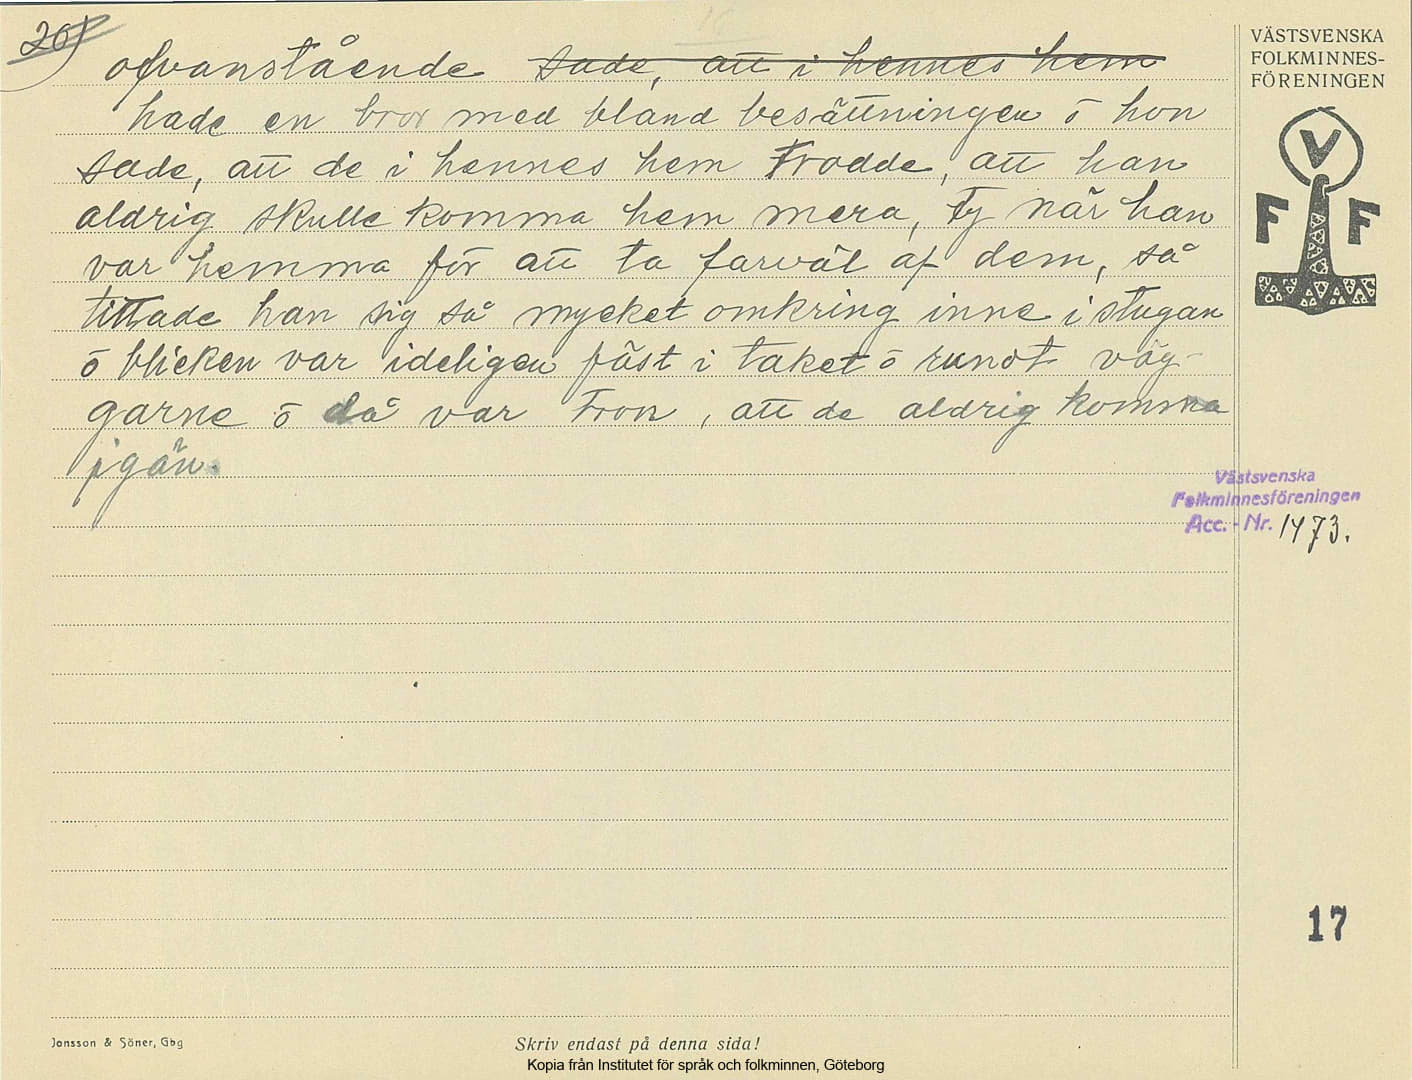 26)
ofvanstående sade, att i hennes hem
hade en bror med bland besättningen ō hon
sade, att de i hennes hem trodde, att han
aldrig skulle komma hem mera, ty när han
var hemma för att ta farväl af dem, så
tittade han sig så mycket omkring inne i stugan
ō blicken var ideligen fäst i taket ō rundt väg-
garne ō då var tron, att de aldrig komma
igän.
VÄSTSVENSKA
FOLKMINNES-
FÖRENINGEN
V
F F
Västsvenska
Folkminnesföreningen
Acc. - Nr. 1473.
17
Jonsson & Söner, Gbg
Skriv endast på denna sida!
Kopia från Institutet för språk och folkminnen, Göteborg